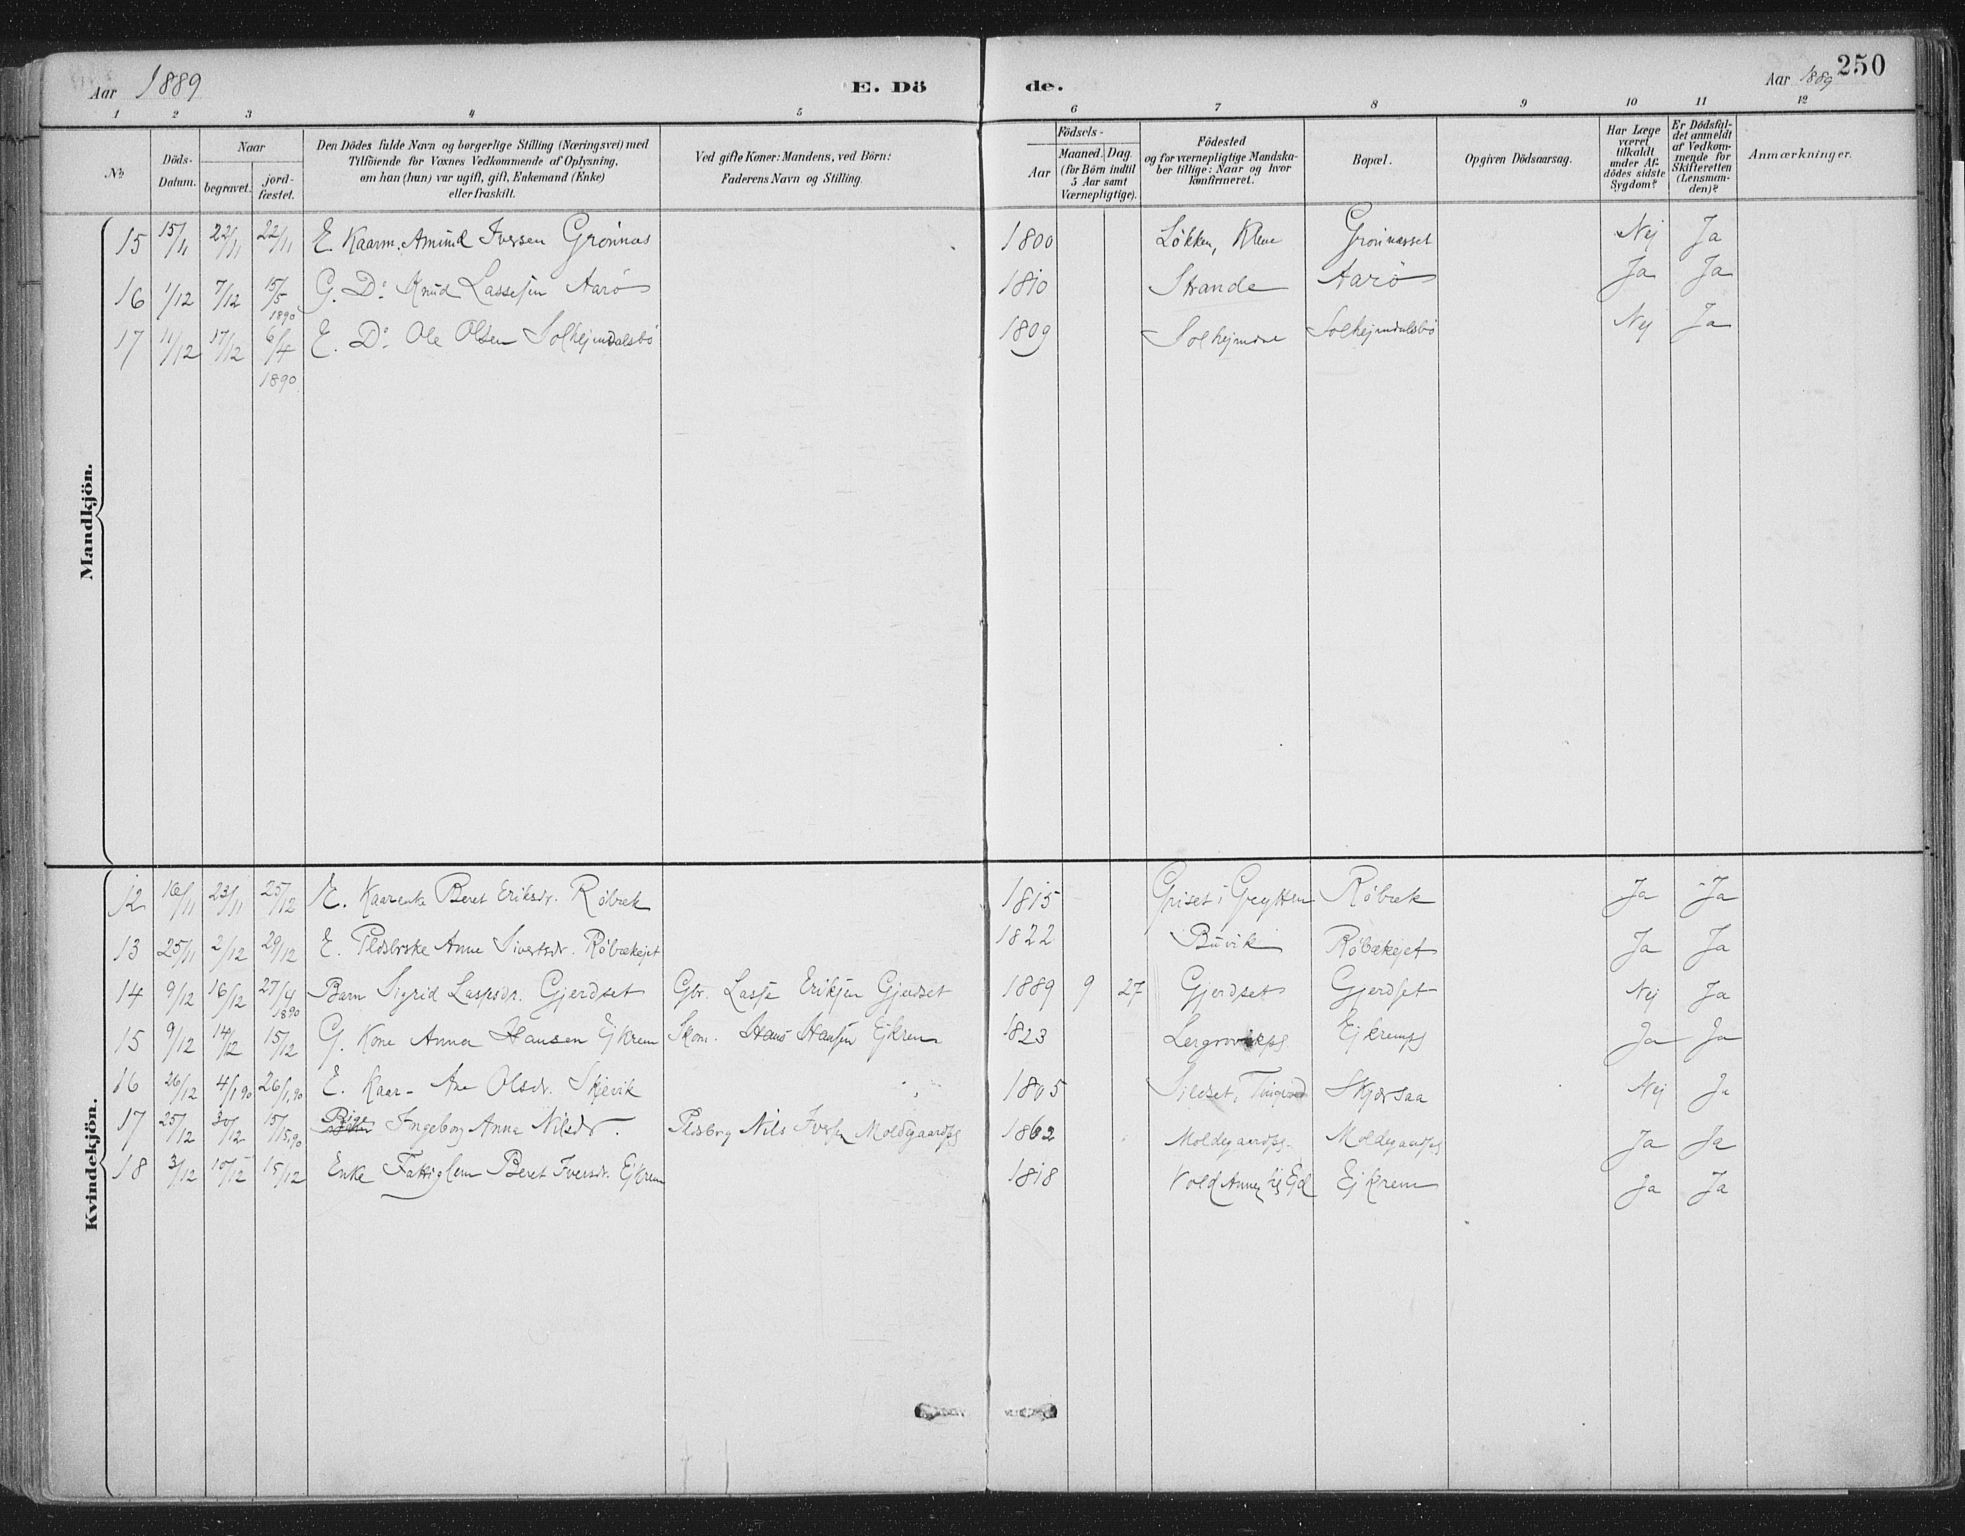 Aar 1889 E. Dö de. Aar 1889 250
1 2 3 4 5 6 7 8 9 10 11 12
№
Döds-Datum.
Naar
begravet.
jord-fæstet.
Den Dödes fulde Navn og borgerlige Stilling (Næringsvei) med
Tilföiende for Voxnes Vedkommende af Oplysning,
om han (hun) var ugift, gift, Enkemand (Enke)
eller fraskilt.
Ved gifte Koner: Mandens, ved Börn:
Faderens Navn og Stilling.
Födsels-
Aar
Maaned. Dag.
(for Börn indtil
5 Aar samt
Værnepligtige).
Födested
og for værnepligtige Mandska-
ber tillige: Naar og hvor
konfirmeret.
Bopæl.
Opgiven Dödsaarsag.
Har Læge
været
tilkaldt
under Af-
dödes sidste
Sygdom?
Er Dödsfal-
det anmeldt
af Vedkom-
mende for
Skifteretten
(Lensman-
den)?
Anmærkninger.
Mandkjön.
15 15/11 22/11 22/11 E. Kaarm. Amund Iversen Grønnæs 1800 Løkken, Kleve Grønnæsset Nej Ja
16 1/12 7/12 15/5 1890 G. Do Knud Lassesen Aarø 1810 Strande Aarø Ja Ja
17 11/12 17/12 6/4 1890 E. Do Ole Olsen Solhejmdalsbø 1809 Solhejmdal Solhejmdalsbø Nej Ja
Kvindekjön.
12 16/11 23/11 25/12 E. Kaarenke Beret Eriksdr. Røbæk 1815 Griset i Grytten Røbæk Ja Ja
13 25/11 2/12 29/12 E. Pldsbrske Anne Sivertsdr. Røbækejet 1822 Buvik Røbækejet Ja Ja
14 9/12 16/12 27/4 1890 Barn Sigrid Lassesdr. Gjerdset Gbr. Lasse Eriksen Gjerdset 1889 9 27 Gjerdset Gjerdset Nej Ja
15 9/12 14/12 15/12 G. Kone Anna Hansen Ejkrem Skom. Hans Hansen Ejkrem 1823 Lergrovikps Ejkremps Ja Ja
16 26/12 4/1 90 26/1, 90 E. Kaar- Ane Olsdr. Skjevik 1805 Sildset, Tingvold Skjorsaa Nej Ja
17 25/12 30/12 15/5, 90 Pige Ingeborg Anna Nilsdr. Pldsbrg Nils Iversen Moldegaardps 1862 Moldegaardps. Moldegaardps Ja Ja
18 3/12 10/12 15/12 Enke Fattiglem Beret Iversdr. Ejkrem 1818 Vold Ejkrem Ja Ja